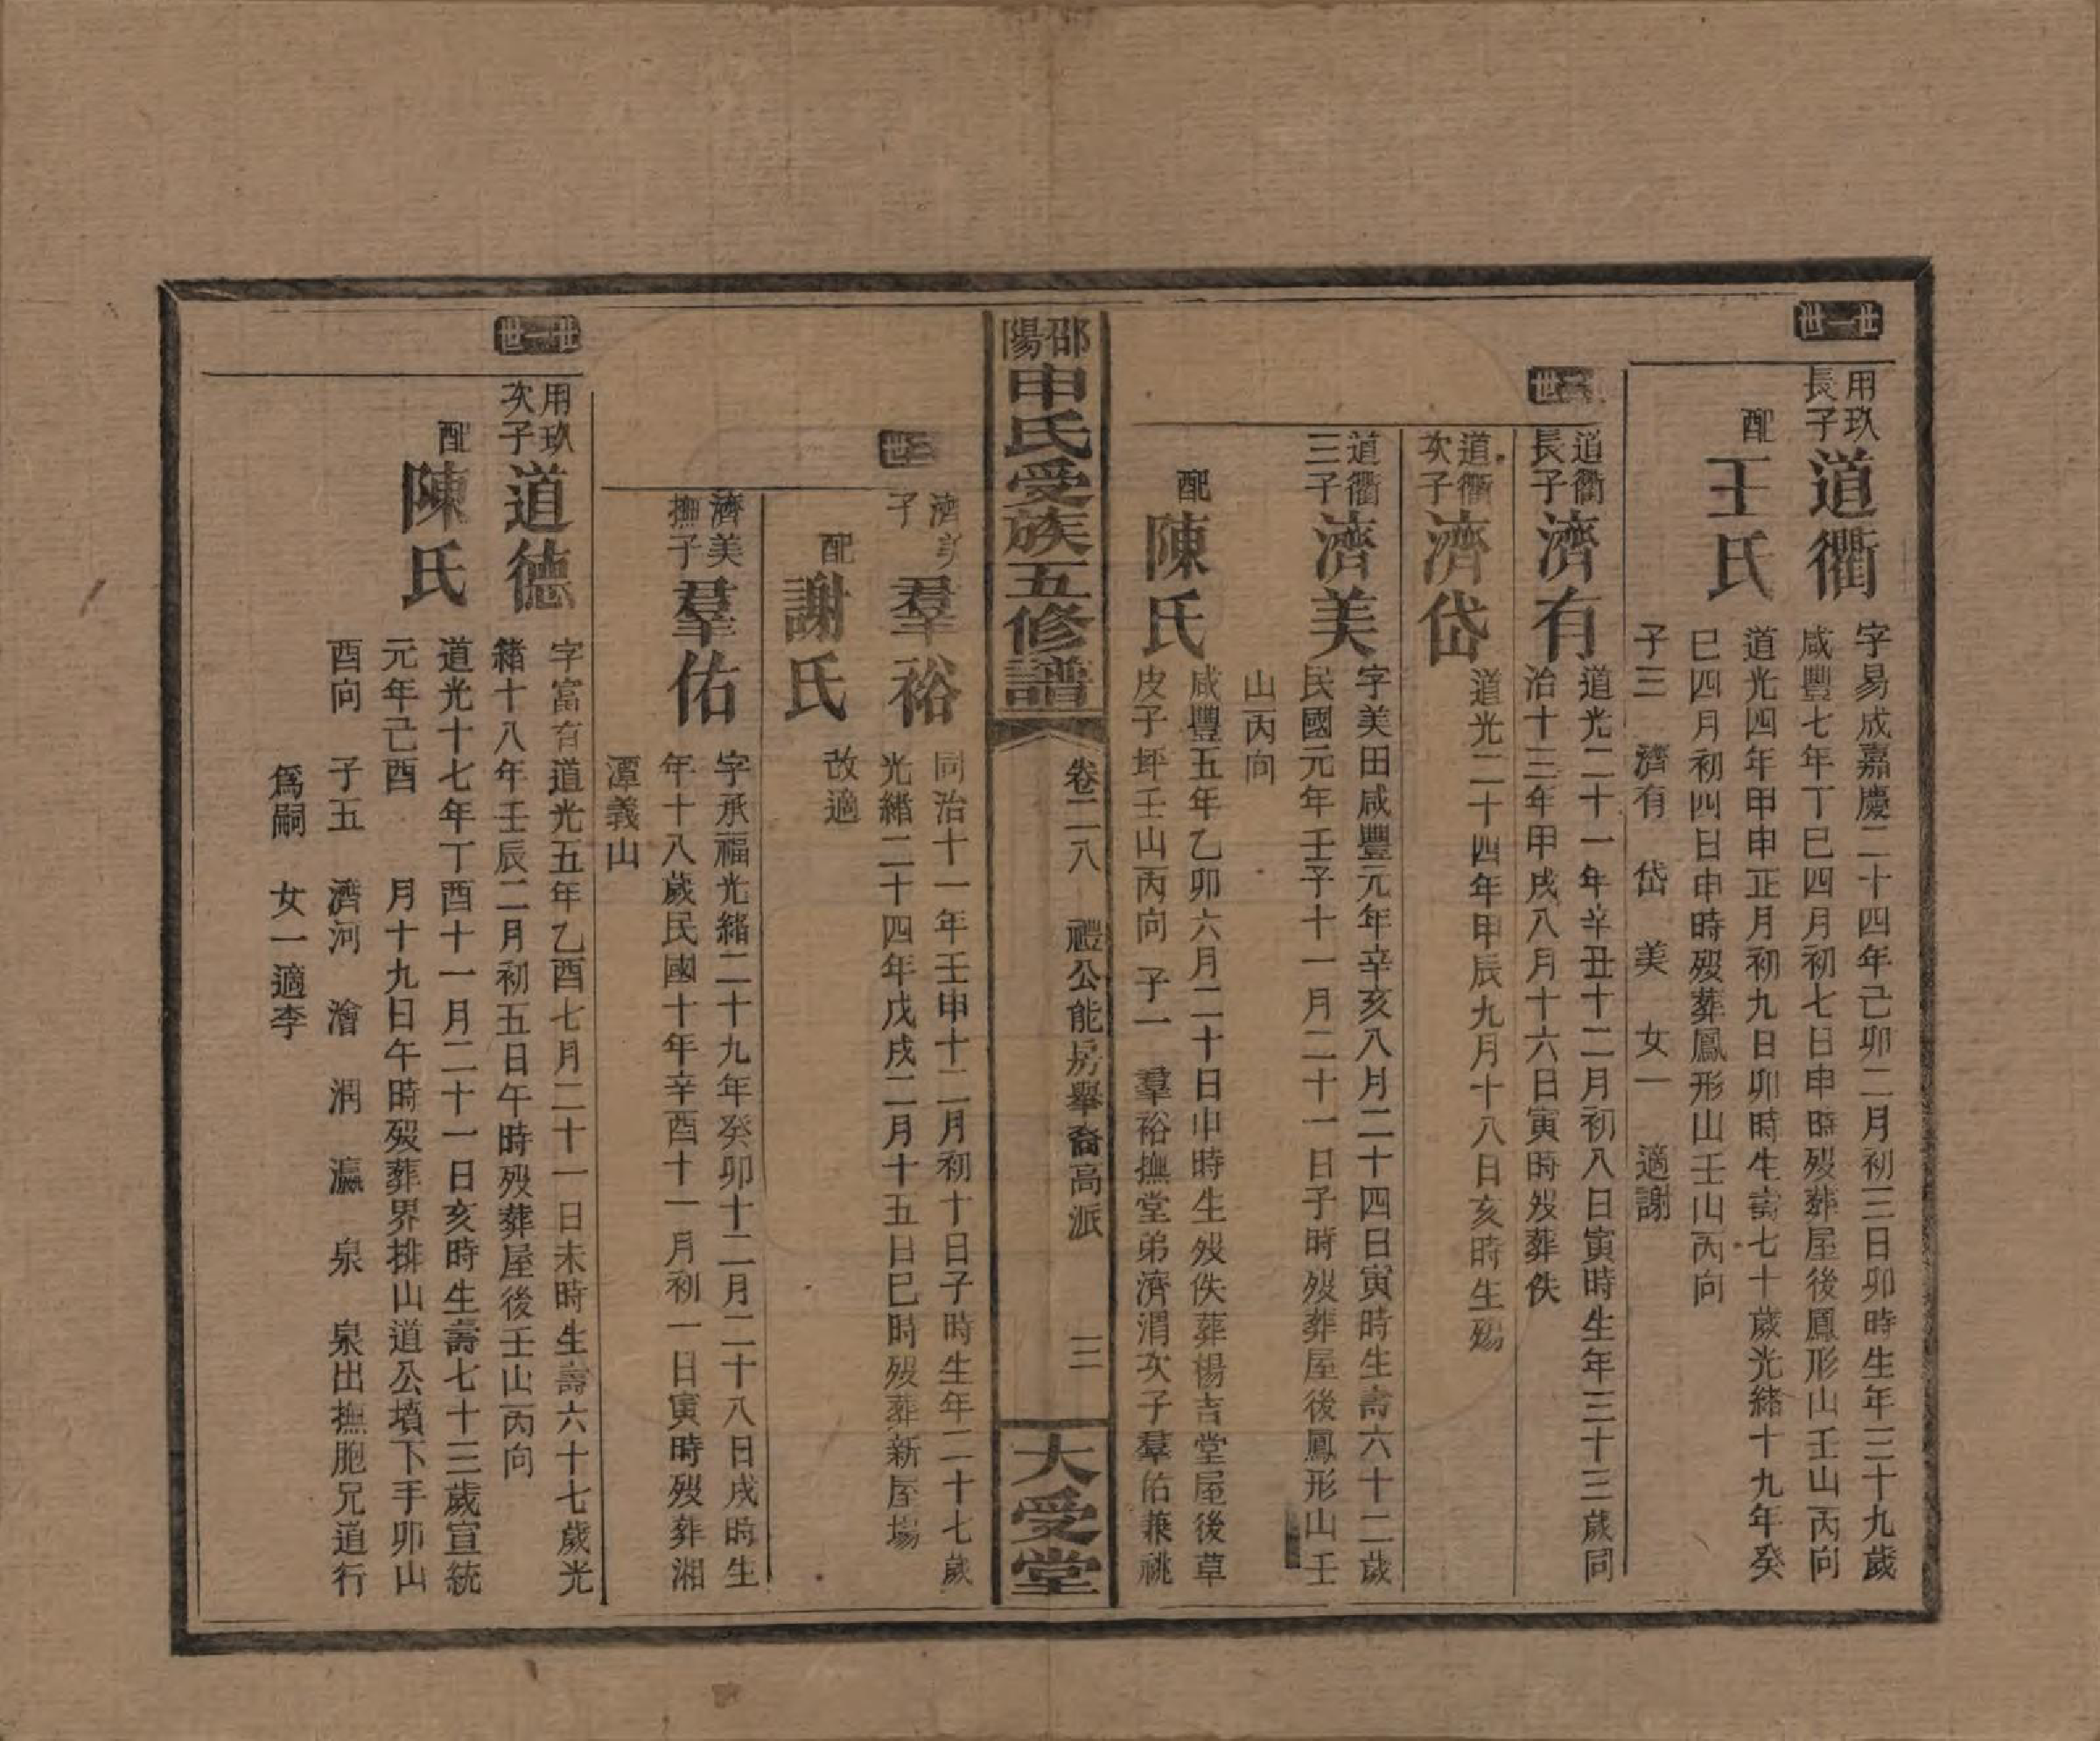 廿一世
用玖長子
道衢
字易成嘉慶二十四年己卯二月初三日卯時生年三十九歲
咸豐七年丁巳四月初七日申時歿葬屋後鳳形山壬山丙向
配
王氏
道光四年甲申正月初九日卯時生壽七十歲光緒十九年癸
巳四月初四日申時歿葬鳳形山壬山丙向
子三 濟有 岱 美 女一 適謝
世
道衢長子
濟有
道光二十一年辛丑十二月初八日寅時生年三十三歲同
治十三年甲戌八月十六日寅時歿葬佚
道衢次子
濟岱
道光二十四年甲辰九月十八日亥時生殤
道衢三子
濟美
字美田咸豐元年辛亥八月二十四日寅時生壽六十二歲
民國元年壬子十一月二十一日子時歿葬屋後鳳形山壬
山丙向
配
陳氏
咸豐五年乙卯六月二十日申時生歿佚葬楊吉堂屋後草
皮子坪壬山丙向 子一 羣裕撫堂弟濟渭次子羣佑兼祧
邵陽申氏受族五修譜
卷二八 禮公能房舉裔高派 三
大受堂
世
濟美子
羣裕
同治十一年壬申十二月初十日子時生年二十七歲
光緒二十四年戊戌二月十五日巳時歿葬新屋場
配
謝氏
改適
濟美撫子
羣佑
字承福光緒二十九年癸卯十二月二十八日戌時生
年十八歲民國十年辛酉十一月初一日寅時歿葬湘
潭義山
廿一世
用玖次子
道德
字富有道光五年乙酉七月二十一日未時生壽六十七歲光
緒十八年壬辰二月初五日午時歿葬屋後壬山丙向
配
陳氏
道光十七年丁酉十一月二十一日亥時生壽七十三歲宣統
元年己酉 月十九日午時歿葬界排山道公墳下手卯山
酉向 子五 濟河 澮 潤 瀛 泉 泉出撫胞兄道行
爲嗣 女一適李